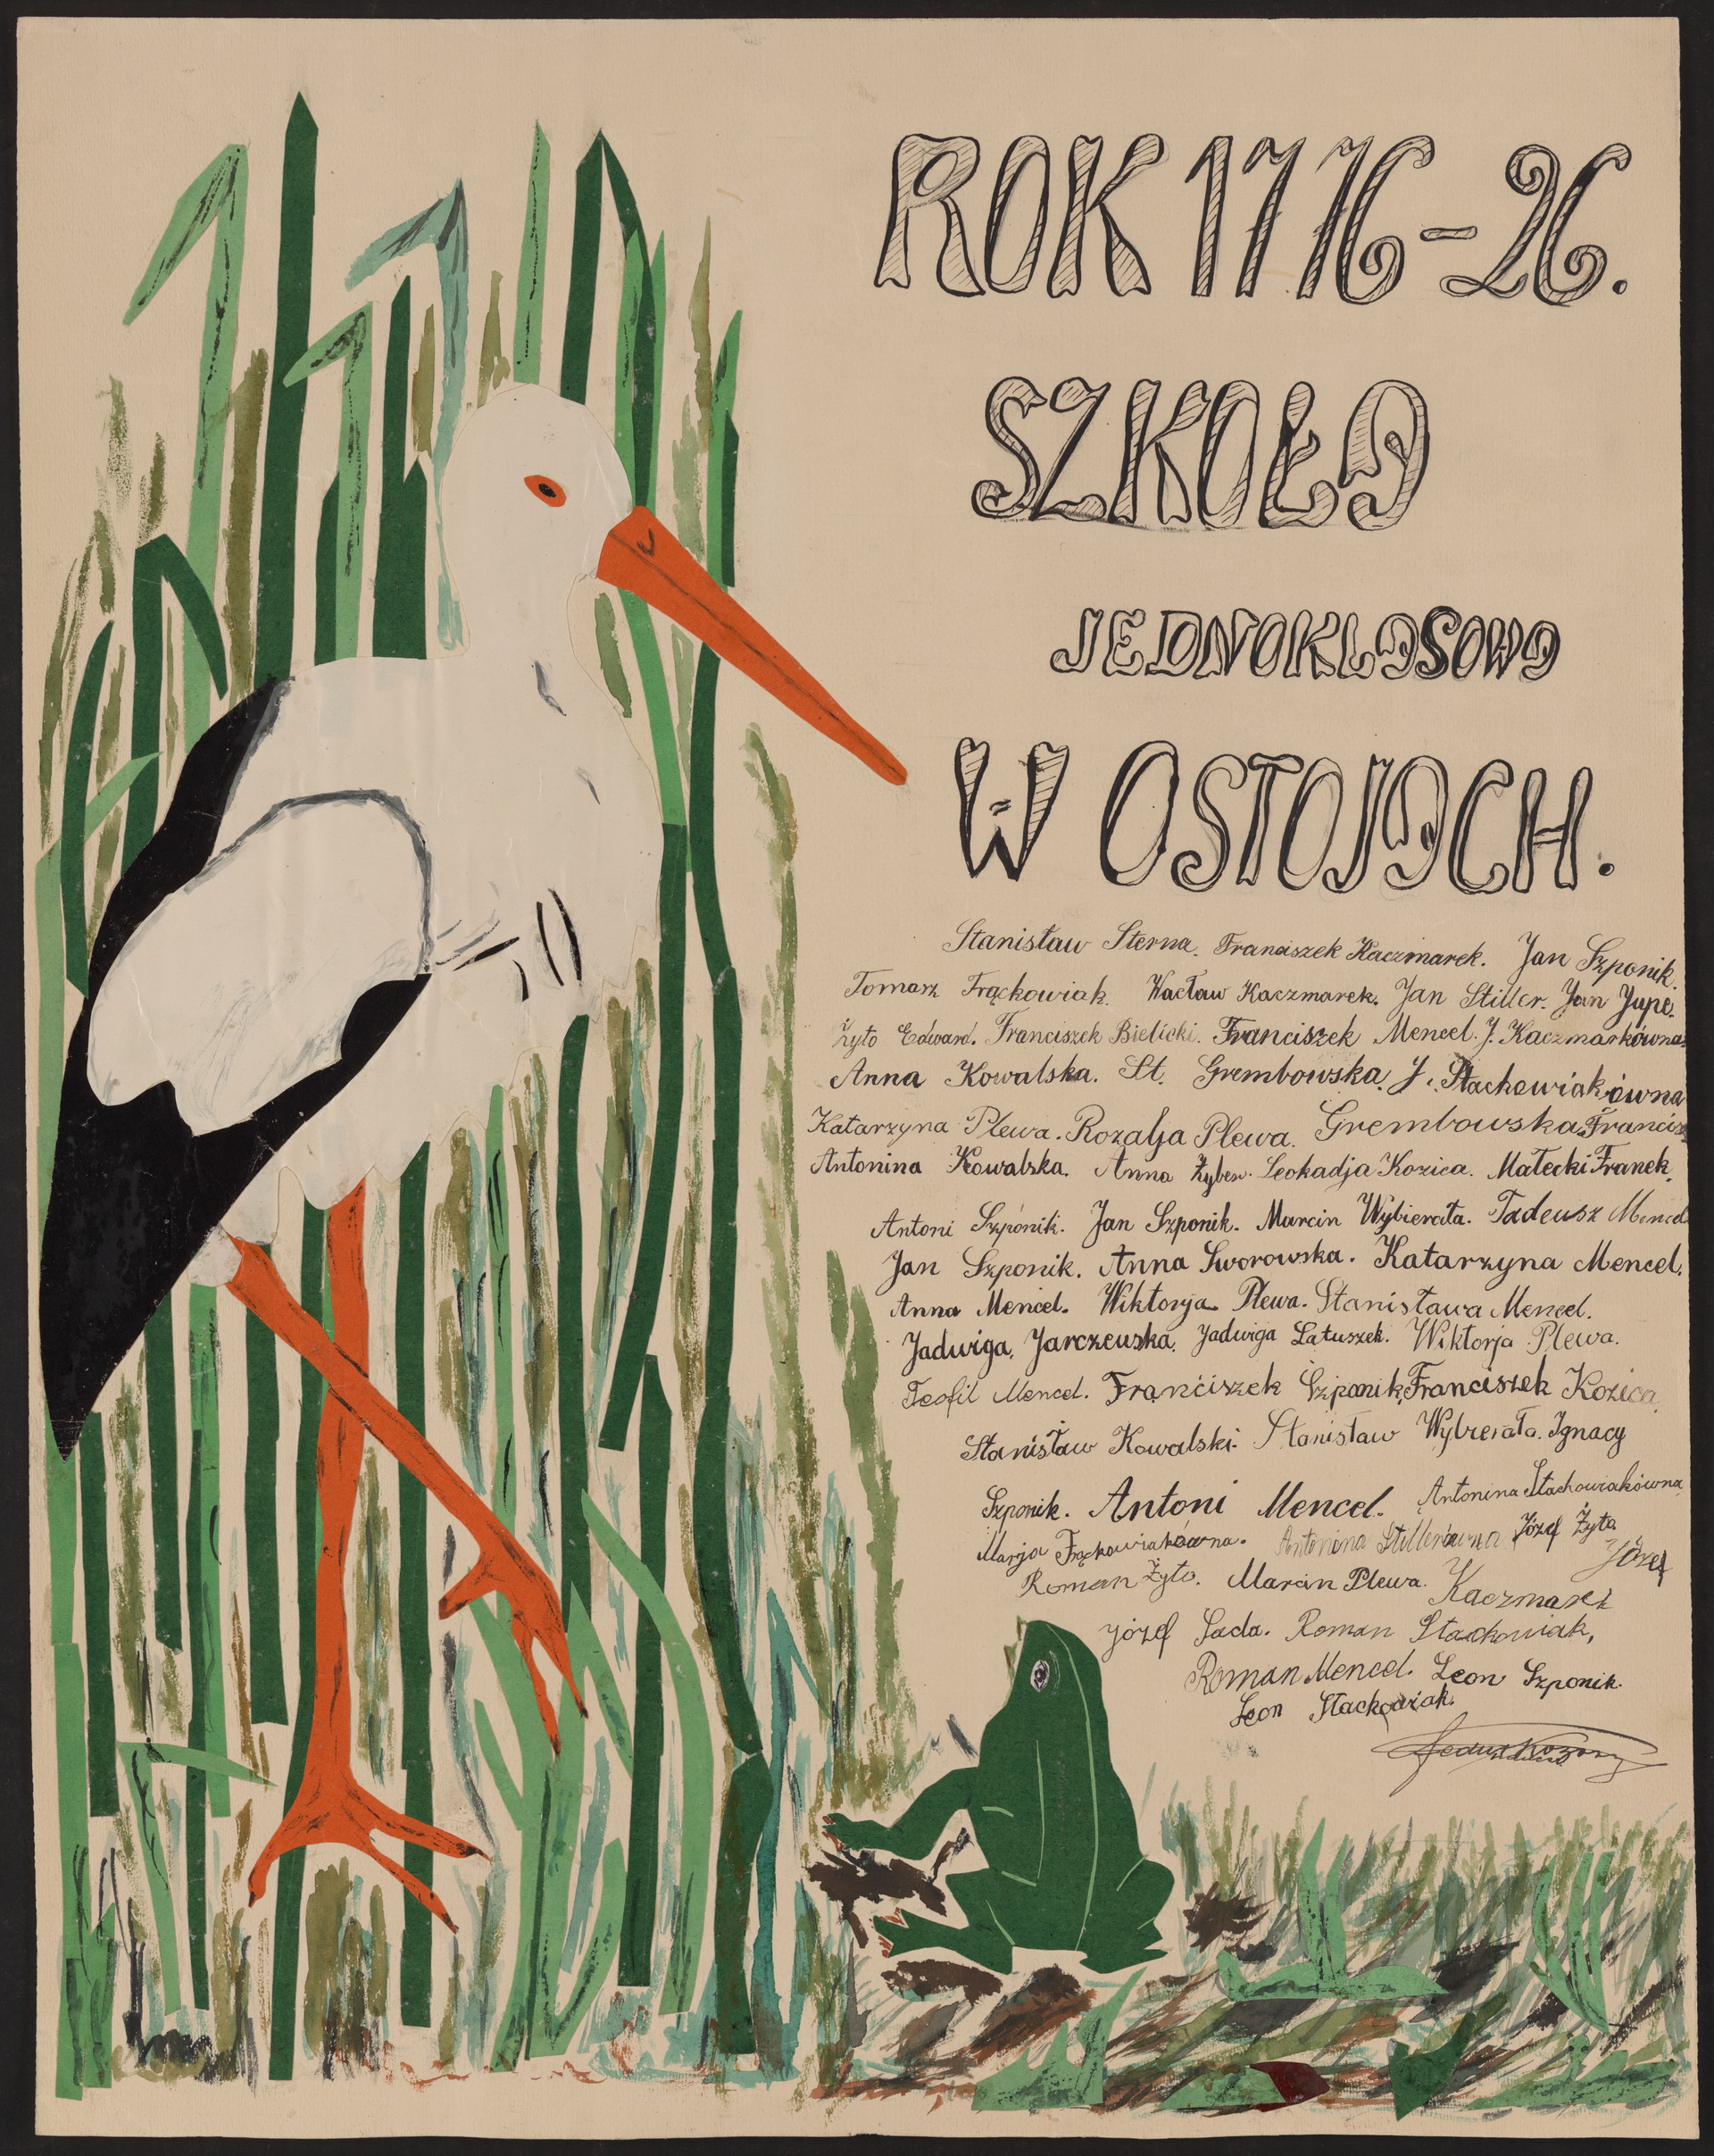 ROK 1776-26.
SZKOŁA
JEDNOKLASOWA
W OSTOJACH.
Stanisław Sterna. Franciszek Kaczmarek. Jan Szponik.
Tomasz Frąckowiak. Wacław Kaczmarek. Jan Stiller. Jan Jupe.
Żyto Edward. Franciszek Bielicki. Franciszek Mencel. J. Kaczmarkówna.
Anna Kowalska. St. Grembowska. J. Stachowiakówna
Katarzyna Plewa. Rozalja Plewa. Grembowska Francisz
Antonina Kowalska. Anna Leokadja Kozica. Małecki Franek.
Antoni Szponik. Jan Szponik. Marcin Wybierała. Tadeusz Mencel
Jan Szponik. Anna Sworowska. Katarzyna Mencel.
Anna Mencel. Wiktorja Plewa. Stanisława Mencel.
Jadwiga Jarczewska. Jadwiga Łatuszek. Wiktorja Plewa.
Teofil Mencel. Franciszek Szponik. Franciszek Kozica.
Stanisław Kowalski. Stanisław Wybierała. Ignacy
Szponik. Antoni Mencel. Antonina Stachowiakówna
Marja Frąckowiakówna. Antonina Stillerówna Józef Żyto
Roman Żyto. Marcin Plewa. Józef
Kaczmarek
Józef Sada. Roman Stachowiak,
Roman Mencel. Leon Szponik.
Leon Stachowiak.